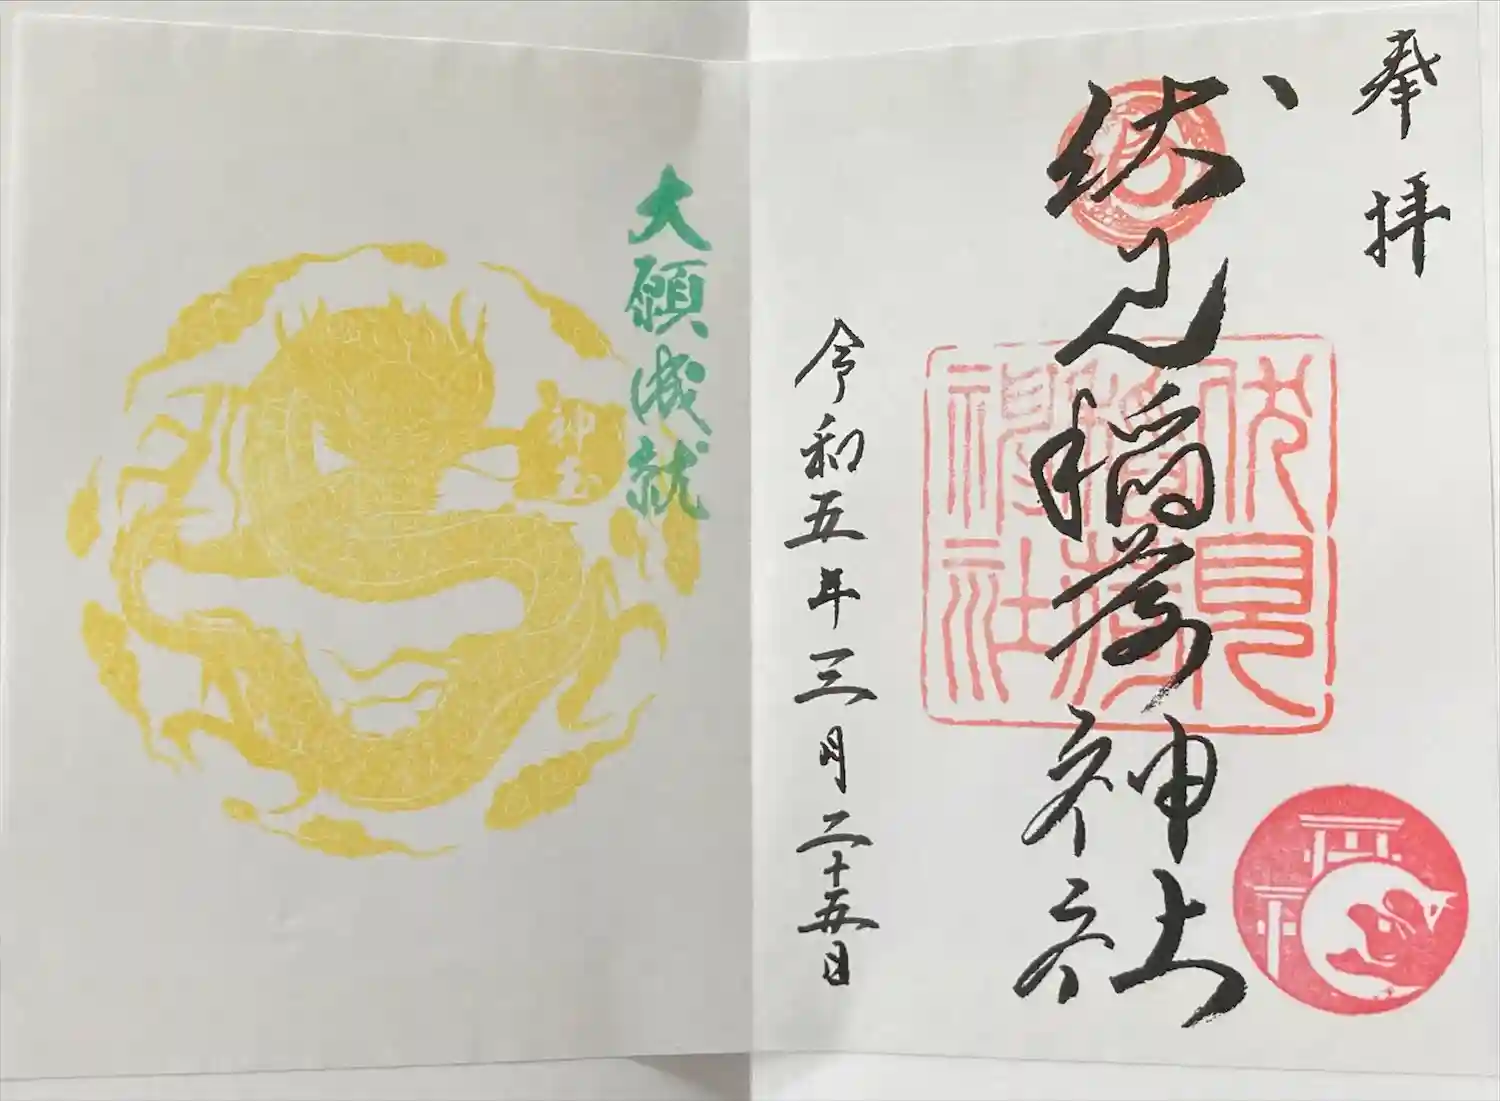 奉拝
伏見稲荷神社
伏見稲荷神社
令和五年三月二十五日
大願成就
神玉